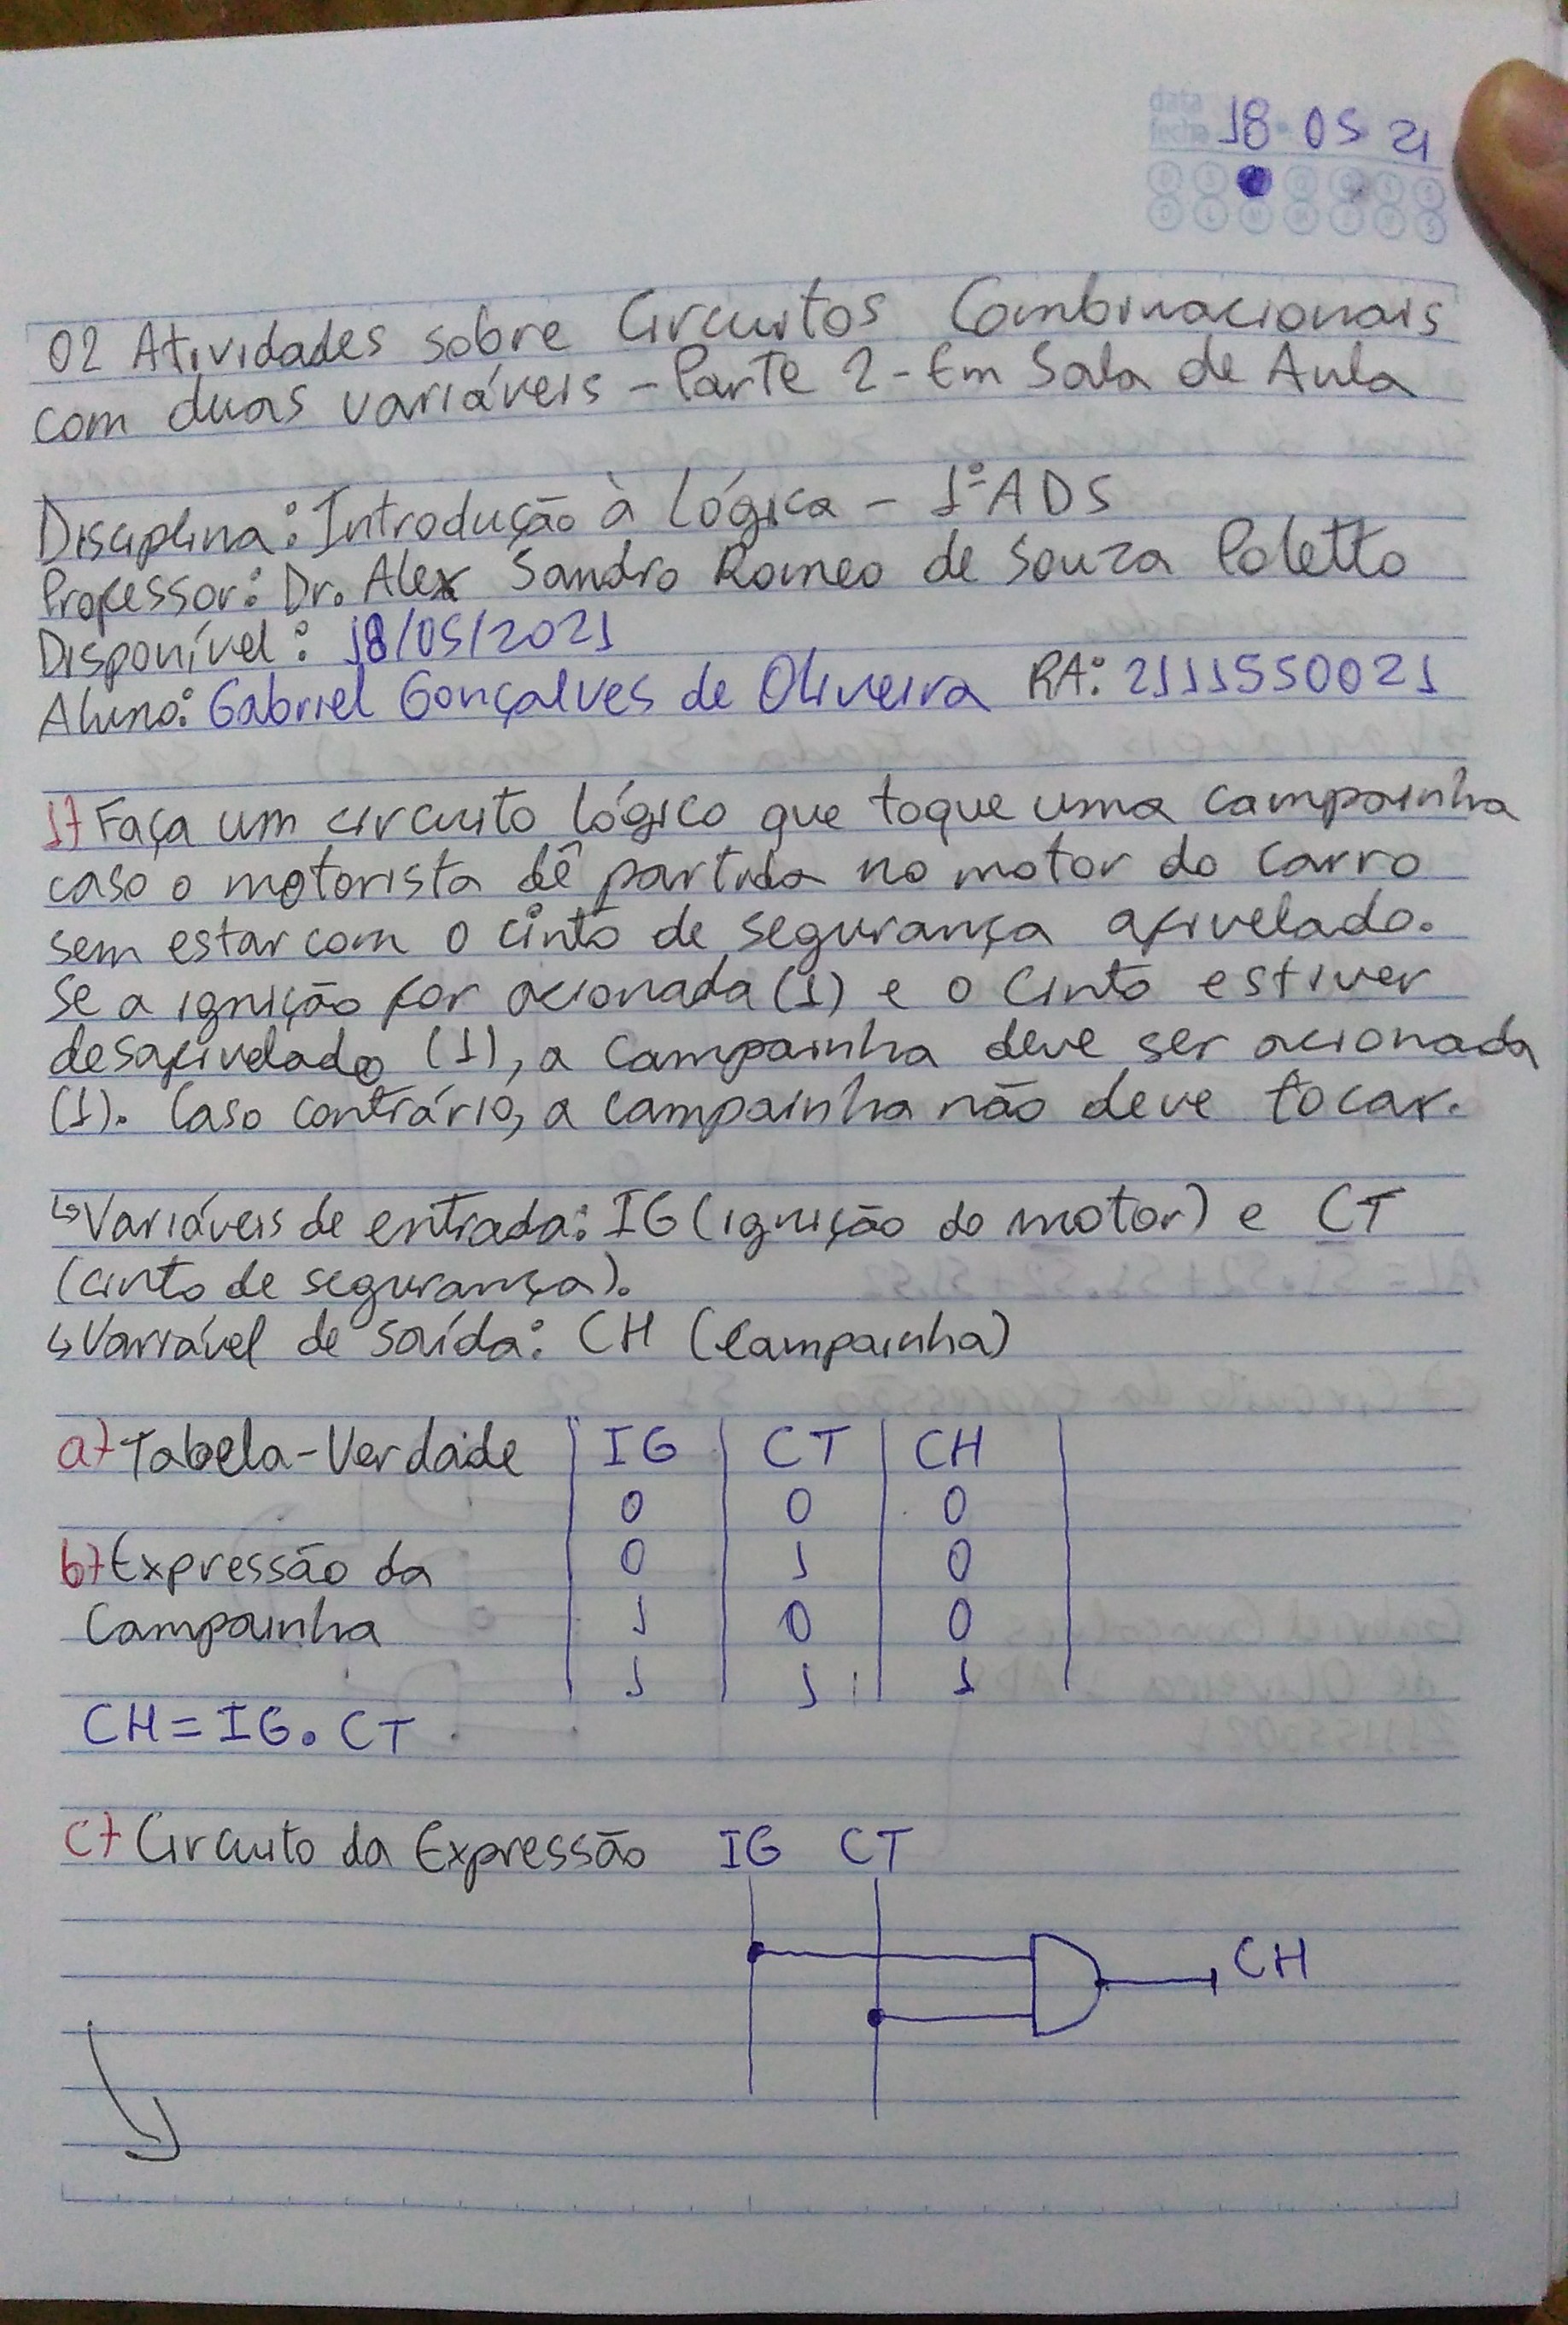 data
fecha 18 05 21
02 Atividades sobre Circuitos Combinacionais
com duas variáveis - Parte 2 - Em Sala de Aula
Disciplina: Introdução à Lógica - 1º ADS
Professor: Dr. Alex Sandro Romeo de Souza Poletto
Disponível: 18/05/2021
Aluno: Gabriel Gonçalves de Oliveira RA: 2111550021
1) Faça um circuito lógico que toque uma campainha
caso o motorista dê partida no motor do carro
sem estar com o cinto de segurança afivelado.
Se a ignição for acionada (1) e o cinto estiver
desafivelado (1), a campainha deve ser acionada
(1). Caso contrário, a campainha não deve tocar.
↳ Variáveis de entrada: IG (ignição do motor) e CT
(cinto de segurança).
↳ Variável de saída: CH (Campainha)
a) Tabela-Verdade IG CT CH
0 0 0
b) Expressão da 0 1 0
Campainha 1 0 0
1 1 1
CH = IG . CT
c) Circuito da Expressão IG CT
CH